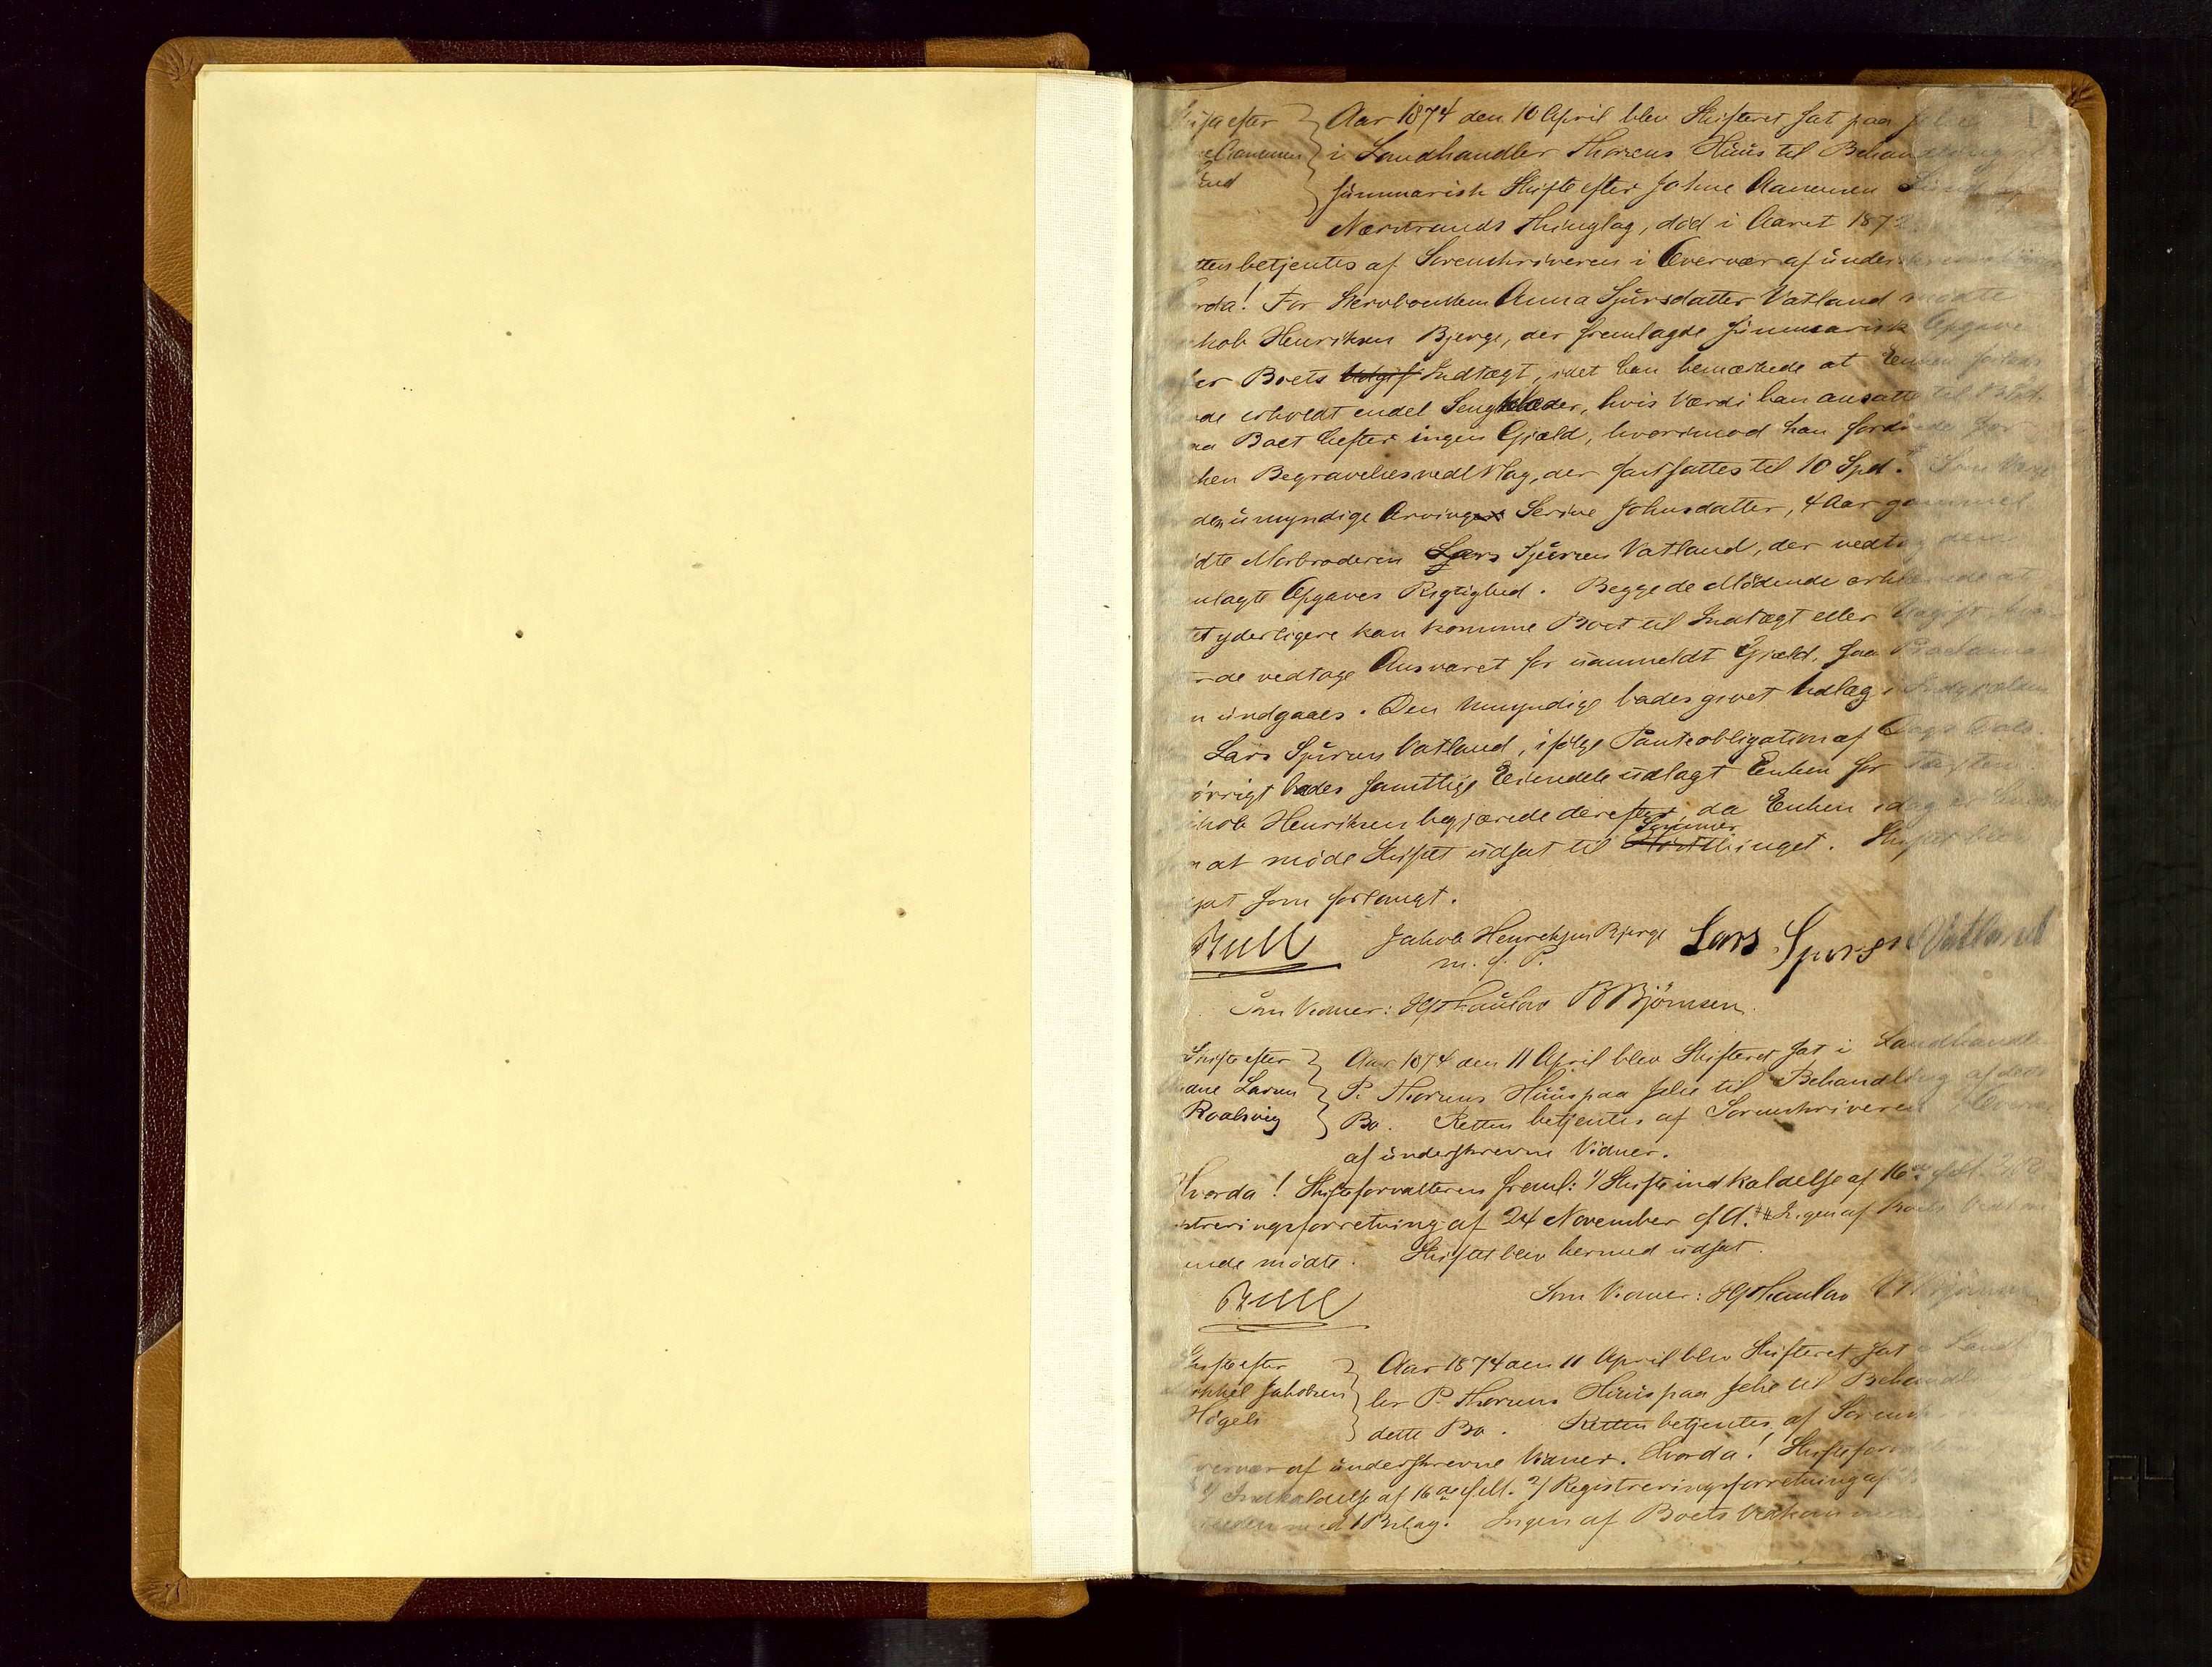 1
Skifte efter
Aar 1874 den 10 April blev Skifteret sat paa Jelse
Aanensen
i Landhandler Thorsens Huus til Behandling af
Sund
summarisk Skifte efter Johne Aanensen Sund af
Nærstrands Thinglag, död i Aaret 187
tten betjentes af Sorenskriveren i Overvær af under
rda! For Stervboenken Anna Sjursdatter Vatland mödte
kob Henriksen Bjerge, der fremlagde summarisk Opgave
er Boets Udgif Indtægt, idet han bemærkede at Enken
de erholdt endel Sengklæder, hvis Værdi han ansatte til
aa Boet hefter ingen Gjæld, hvorimod han fordrede for
ken Begravelsesvedlag, der fastsattes til 10 Spd. Som Verge
den umyndige Arvinger Serine Johnsdatter, 4 Aar gammel
ödte Morbroderen Lars Sjursen Vatland, der vedtog den
mlagte Opgaves Rigtighed. Begge de Mödende erklærede at
et yderligere kan komme Boet til Indtægt eller Udgift,
de vedtage Ansvaret for uanmeldt Gjæld, saa Proclama
n undgaaes. Den Umyndige bades givet Udlæg i
Lars Sjursen Vatland, ifölge Panteobligation af Dags Dato.
övrigt bades samtlige Eiendele udlagt Enken for
kob Henriksen begjærede derefter, da Enken idag er
Sommer
at möde Skiftet udsat til Höstthinget. Skiftet blev
sat som forlangt.
Bull Jakob Henriksen Bjerge Lars Sjursen Vatland
m. f. P.
Som Vidner: B Björnsen.
Skifte efter
Aar 1874 den 11 April blev Skifteret sat i Landhandler
ane Larsen
P. Thorsens Huus paa Jelse til Behandling af dette
Roalsvig
Bo. Retten betjentes af Sorenskriveren i Overvær
af underskrevne Vidner.
Hvorda! Skifteforvalteren freml: 1/ Skifteindkaldelse af 16de
streringsforretning af 24 November f. A. Ingen af Boets
ende mödte. Skiftet blev hermed udsat.
Bull
Som Vidner:
Skifte efter
Aar 1874 den 11 April blev Skifteret sat i Land
Mikkel Jakobsen
ler P. Thorsens Huus paa Jelse til Behandl
Högeli
dette Bo. Retten betjentes af Sorensk
Overvær af underskrevne Vidner. Hvorda! Skifteforvalteren
1/ Indkaldelse af 16de f. M. 2/ Registreringsforretning af
med 1 Bilag. Ingen af Boets Vedkommende